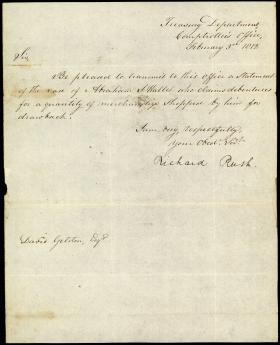 Treasury Department,
Comptroller's Office,
February 3d 1812
Sir,
Be pleased to transmit to this office a statement
of the case of Abraham S. Hallet who claims debentures
for a quantity of merchandize shipped by him for
drawback.
I am very respectfully,
your Obedt. Servt.
Richard Rush.
David Gelston, Esqr